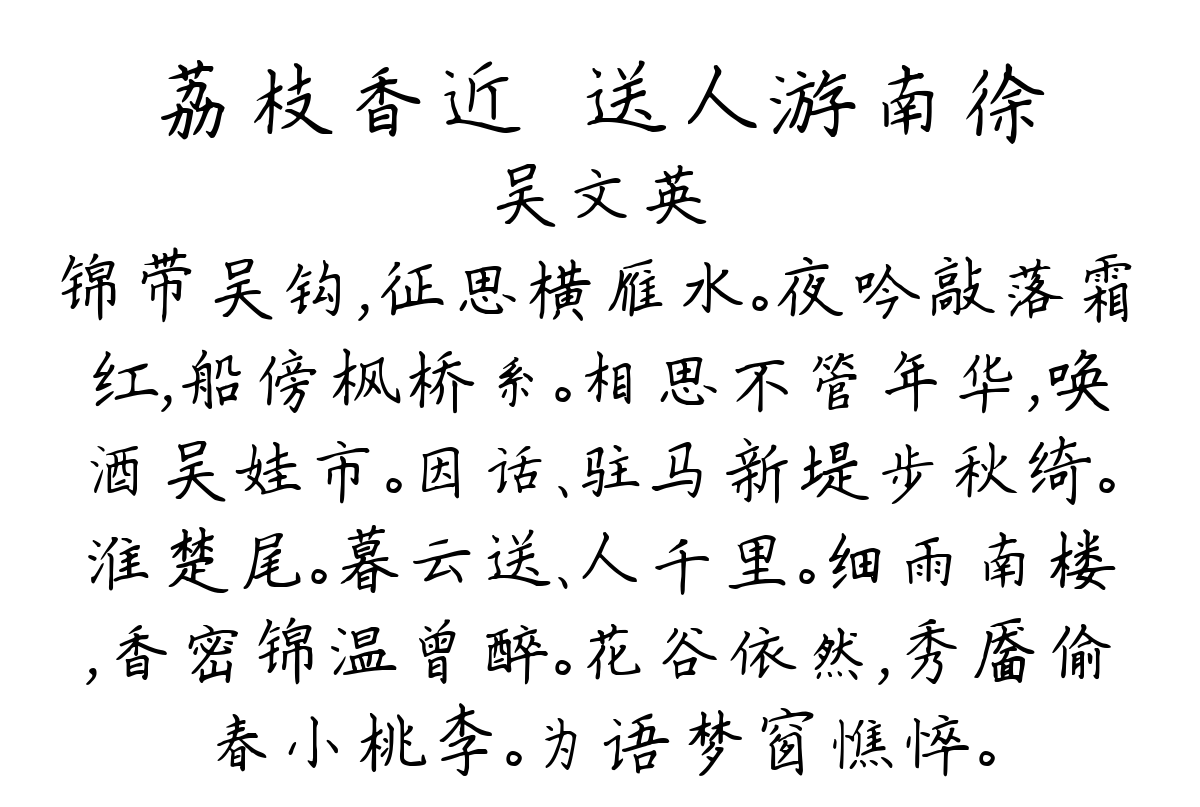 荔枝香近 送人游南徐
吴文英
锦带吴钩,征思横雁水。夜吟敲落霜
红,船傍枫桥系。相思不管年华,唤
酒吴娃市。因话、驻马新堤步秋绮。
淮楚尾。暮云送、人千里。细雨南楼
,香密锦温曾醉。花谷依然,秀靥偷
春小桃李。为语梦窗憔悴。